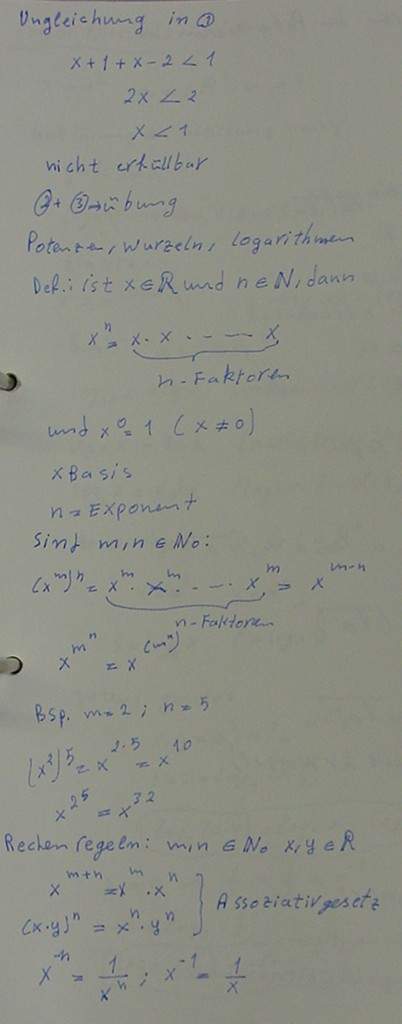 Ungleichung in ①
x+1+x-2<1
2x<2
x<1
nicht erfüllbar
②+③→übung
Potenzen, wurzeln, logarithmen
Def.: ist x∈ℝ und n∈ℕ, dann
xⁿ = x · x · ---- x
n-Faktoren
und x⁰=1 (x≠0)
x Basis
n = Exponent
Sind m,n ∈ ℕ₀:
(x^m)^n = x^m · x^m · --- · x^m = x^(m·n)
n-Faktoren
x^m^n = x^(m^n)
Bsp. m=2 ; n=5
(x²)^5 = x^2·5 = x^10
x^2^5 = x^32
Rechenregeln: m,n ∈ ℕ₀ x,y ∈ ℝ
x^m+n = x^m · x^n
(x·y)^n = x^n · y^n } Assoziativgesetz
x^-n = 1/x^n ; x^-1 = 1/x